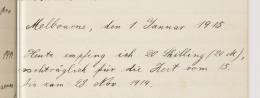 Melbourne, den 1 Januar 1915.
Heute empfing ich 20 Shilling (20 M),
nachträglich für die Zeit vom 15.
bis zum 23. Nov. 1914.